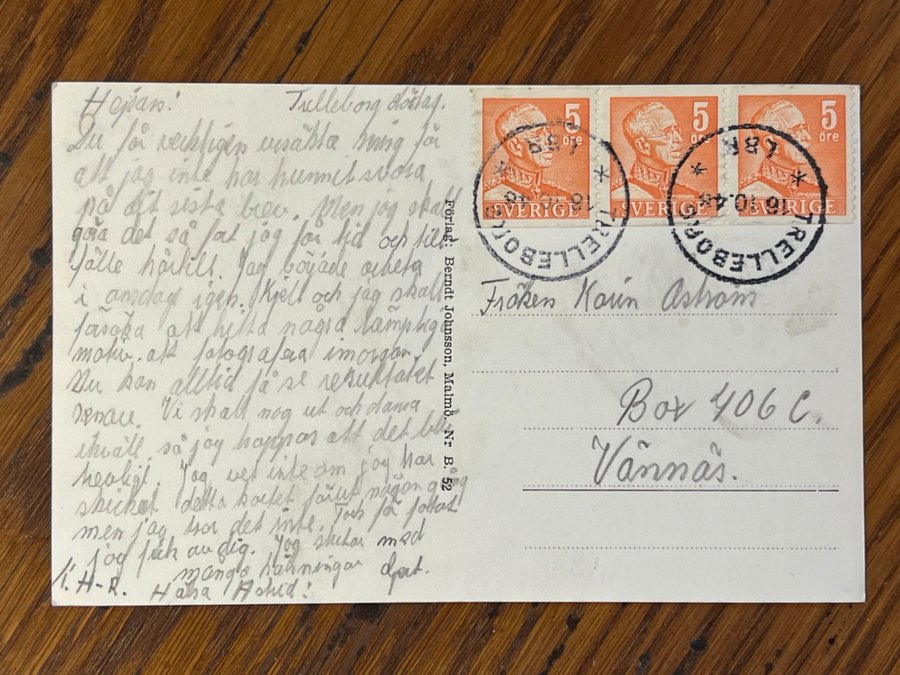 Hejsan! Trelleborg Lördag.
Du får verkligen ursäkta mig för
att jag inte har hunnit svara
på dit sista brev. Men jag skall
göra det så fort jag får tid och till
fälle härtill. Jag började arbeta
i onsdag igen. Kjell och jag skall
försöka att hitta några lämpliga
motiv att fotografera imorgon
Du kan alltid få se resultatet
senare. Vi skall nog ut och dansa
ikväll så jag hoppas att det blir
trevligt. Jag vet inte om jag har
skickat detta kortet förut någon gång
men jag tror det inte. Tack för fotot
jag fick av dig. Jag slutar med
många hälsningar
H-R. Hälsa Astrid!
Förlag: Berndt Johnsson, Malmö. Nr B. 52
5 öre SVERIGE
5 öre SVERIGE
5 öre SVERIGE
TRELLEBORG LBR
TRELLEBORG 16.10.48 LBR
Fröken Karin Åströms
Box 406 C.
Vännäs.